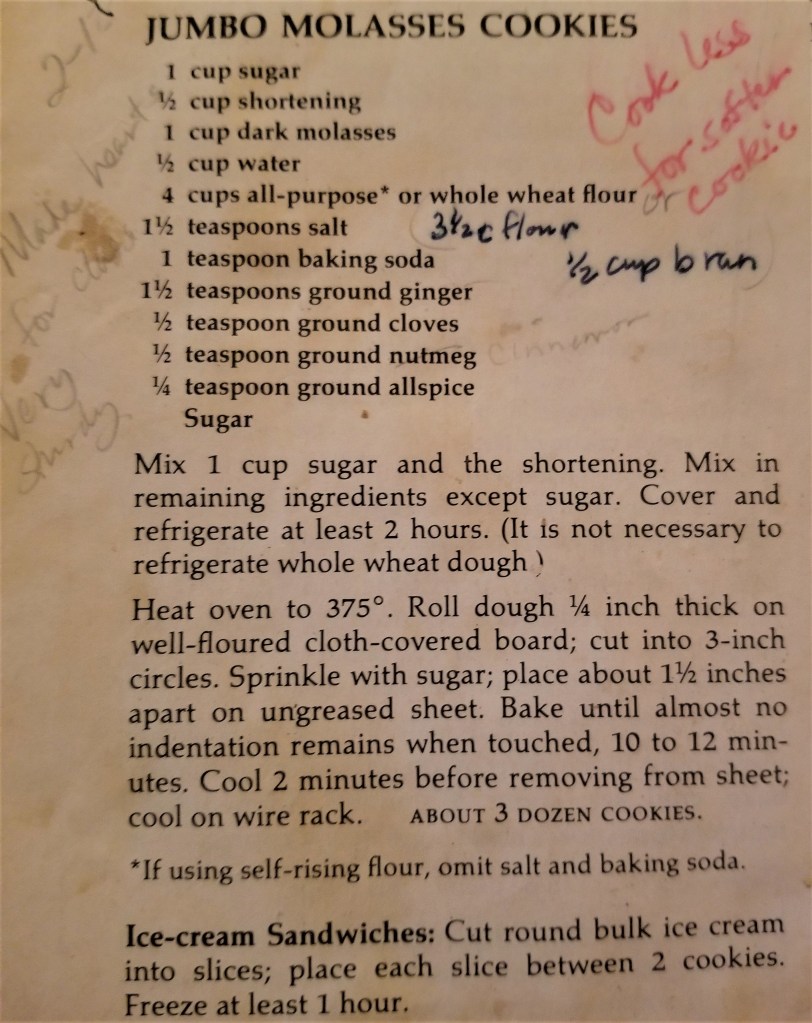 2-1
JUMBO MOLASSES COOKIES
1 cup sugar
½ cup shortening
1 cup dark molasses
½ cup water
4 cups all-purpose* or whole wheat flour or
1½ teaspoons salt
1 teaspoon baking soda
1½ teaspoons ground ginger
½ teaspoon ground cloves
½ teaspoon ground nutmeg cinnamon
¼ teaspoon ground allspice
Sugar
Cook less
for softer
cookie
3½ c flour
½ cup bran
Make
for
Very
sturdy
Mix 1 cup sugar and the shortening. Mix in
remaining ingredients except sugar. Cover and
refrigerate at least 2 hours. (It is not necessary to
refrigerate whole wheat dough)
Heat oven to 375°. Roll dough ¼ inch thick on
well-floured cloth-covered board; cut into 3-inch
circles. Sprinkle with sugar; place about 1½ inches
apart on ungreased sheet. Bake until almost no
indentation remains when touched, 10 to 12 min-
utes. Cool 2 minutes before removing from sheet;
cool on wire rack. ABOUT 3 DOZEN COOKIES.
*If using self-rising flour, omit salt and baking soda.
Ice-cream Sandwiches: Cut round bulk ice cream
into slices; place each slice between 2 cookies.
Freeze at least 1 hour.